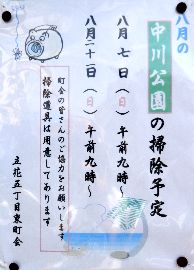 八月の
中川公園の掃除予定
八月 七日（日）午前九時～
八月二十一日（日）午前九時～
町会の皆さんのご協力をお願いします
掃除道具は用意してあります
立花五丁目東町会